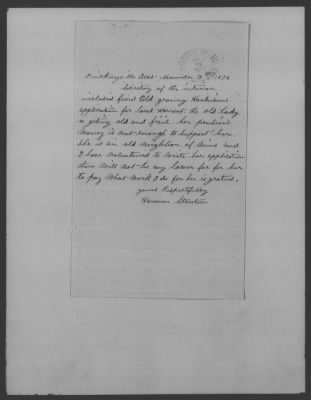 Secretary of the interior
inclosed find Old granny Harkinsons
application for land warrant. the old Lady
is geting old and frail her pention
money is not enough to support her
she is an old neighbor of mine and
I have volentered to write her application
there will not be any lawer fee for her
to pay What work I do for her is gratus,
yours Respectfully
Herman